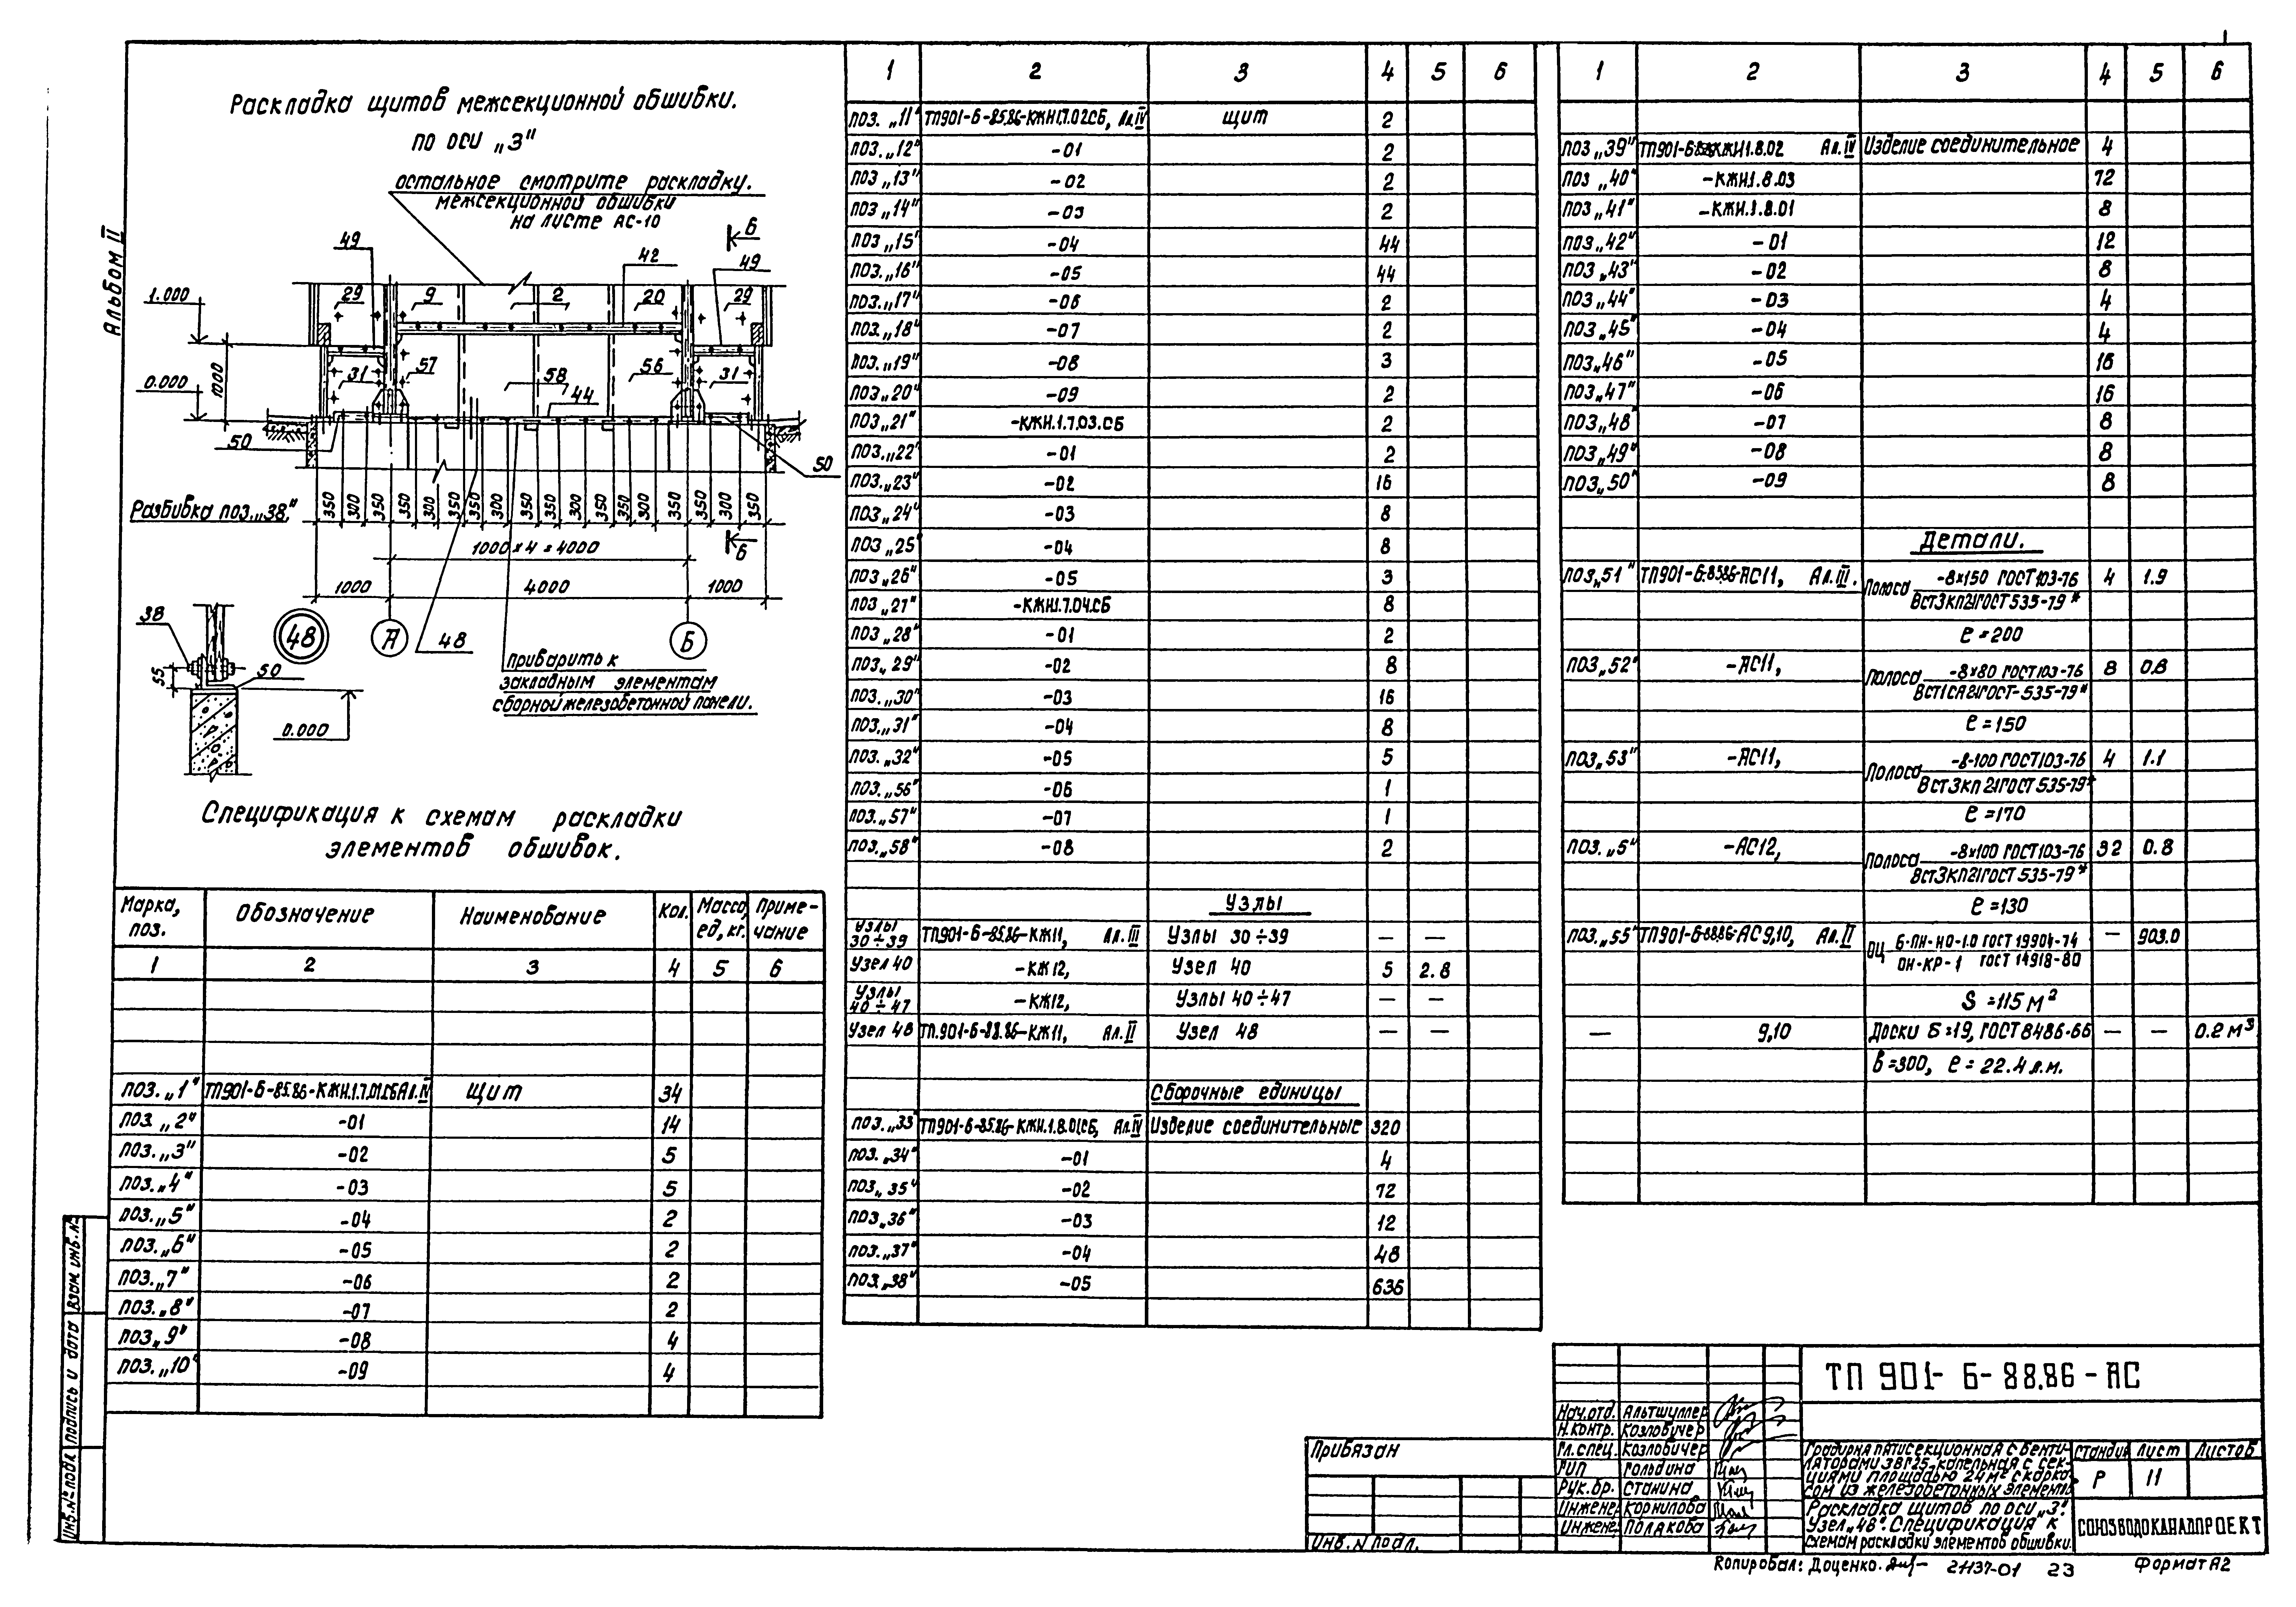 Альбом II
Раскладка щитов межсекционной обшивки.
по оси „3"
остальное смотрите раскладку.
межсекционной обшивки
на листе АС-10
Б
49
42
49
1.000
29
9
2
20
29
1000
0.000
31
57
58
56
31
44
50
50
Разбивка поз. „38"
350 300 350 350 300 350 350 300 350 350 300 350 350 300 350 350 300 350
Б
1000 × 4 = 4000
1000
4000
1000
А
Б
48
38
48
55
50
0.000
приварить к
закладным элементам
сборной железобетонной панели.
Спецификация к схемам раскладки
элементов обшивок.
Марка, поз. Обозначение Наименование Кол. Масса, ед, кг. Приме-чание
1 2 3 4 5 6
поз. „1" ТП901-6-85.86-КЖН.1.7.01СБ Ал. IV Щит 34
поз. „2" -01 14
поз. „3" -02 5
поз. „4" -03 5
поз. „5" -04 2
поз. „6" -05 2
поз. „7" -06 2
поз. „8" -07 2
поз. „9" -08 4
поз. „10" -09 4
1 2 3 4 5 6
поз. „11" ТП901-6-85.86-КЖН.1.7.02СБ, Ал. IV щит 2
поз. „12" -01 2
поз. „13" -02 2
поз. „14" -03 2
поз. „15" -04 44
поз. „16" -05 44
поз. „17" -06 2
поз. „18" -07 2
поз. „19" -08 3
поз. „20" -09 2
поз. „21" -КЖН.1.7.03.СБ 2
поз. „22" -01 2
поз. „23" -02 16
поз. „24" -03 8
поз. „25" -04 8
поз. „26" -05 3
поз. „27" -КЖН.1.7.04.СБ 8
поз. „28" -01 2
поз. „29" -02 8
поз. „30" -03 16
поз. „31" -04 8
поз. „32" -05 5
поз. „56" -06 1
поз. „57" -07 1
поз. „58" -08 2
Узлы
Узлы 30÷39 ТП901-6-85.86-КЖ11, Ал. III Узлы 30÷39 — —
Узел 40 -КЖ12, Узел 40 5 2.8
Узлы 40÷47 -КЖ12, Узлы 40÷47 — —
Узел 48 ТП.901-6-88.86-КЖ11, Ал. II Узел 48 — —
Сборочные единицы
поз. „33" ТП901-6-85.86-КЖН.1.8.01СБ, Ал. IV Изделие соединительные 320
поз. „34" -01 4
поз. „35" -02 72
поз. „36" -03 12
поз. „37" -04 48
поз. „38" -05 636
1 2 3 4 5 6
поз „39" ТП901-6-85.86-КЖН1.8.02 Ал. IV Изделие соединительное 4
поз „40" -КЖН.1.8.03 72
поз „41" -КЖН.1.8.01 8
поз „42" -01 12
поз „43" -02 8
поз „44" -03 4
поз „45" -04 4
поз „46" -05 16
поз. „47" -06 16
поз „48" -07 8
поз „49" -08 8
поз „50" -09 8
Детали.
поз „51" ТП901-6-85.86-АС11, Ал. III. Полоса -8×150 ГОСТ103-76 4 1.9
ВСт3кп2 ГОСТ 535-79*
ℓ = 200
поз „52" -АС11, Полоса -8×80 ГОСТ103-76 8 0.8
ГОСТ-535-79*
ℓ = 150
поз „53" -АС11, Полоса -8-100 ГОСТ103-76 4 1.1
ВСт3кп2 ГОСТ535-79*
ℓ = 170
поз. „5" -АС12, Полоса -8×100 ГОСТ103-76 32 0.8
ВСт3кп2 ГОСТ 535-79*
ℓ = 130
поз. „55" ТП901-6-88.86-АС9,10, Ал. II ОЦ Б-ПН-НО-1.0 ГОСТ 19904-74 — 903.0
ОН-КР-1 ГОСТ 14918-80
S = 115 м²
— 9,10 Доски Б=19, ГОСТ8486-66 — — 0.2 м³
в=300, ℓ = 22.4 п.м.
Взам инв. №
Подпись и дата
Инв. № подл
Привязан
Инв. N подл.
ТП 901-6-88.86-АС
Нач.отд. Альтшуллер
Н.контр. Козловичер
Гл.спец. Козловичер
ГИП Гольдина
Рук.бр. Станина
Инжене Корнилова
Инжене Полякова
Градирня пятисекционная с венти-
ляторами 3ВГ25 капельная с сек-
циями площадью 24м² с карка-
сом из железобетонных элементов
Стандия Лист Листов
Р 11
Раскладка щитов по оси „3".
Узел „48". Спецификация к
схемам раскладки элементов обшивки.
СОЮЗВОДОКАНАЛПРОЕКТ
Копировал: Доценко. 21137-01 23 Формат А2